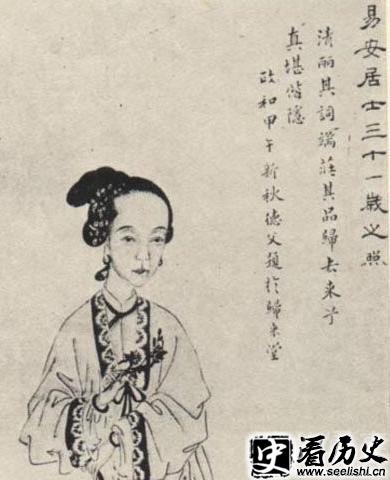 易安居士三十一歲之照
清丽其詞端莊其品歸去來兮
真堪偕隱
政和甲午新秋德父題於歸來堂
史看历史
www.seelishi.cn